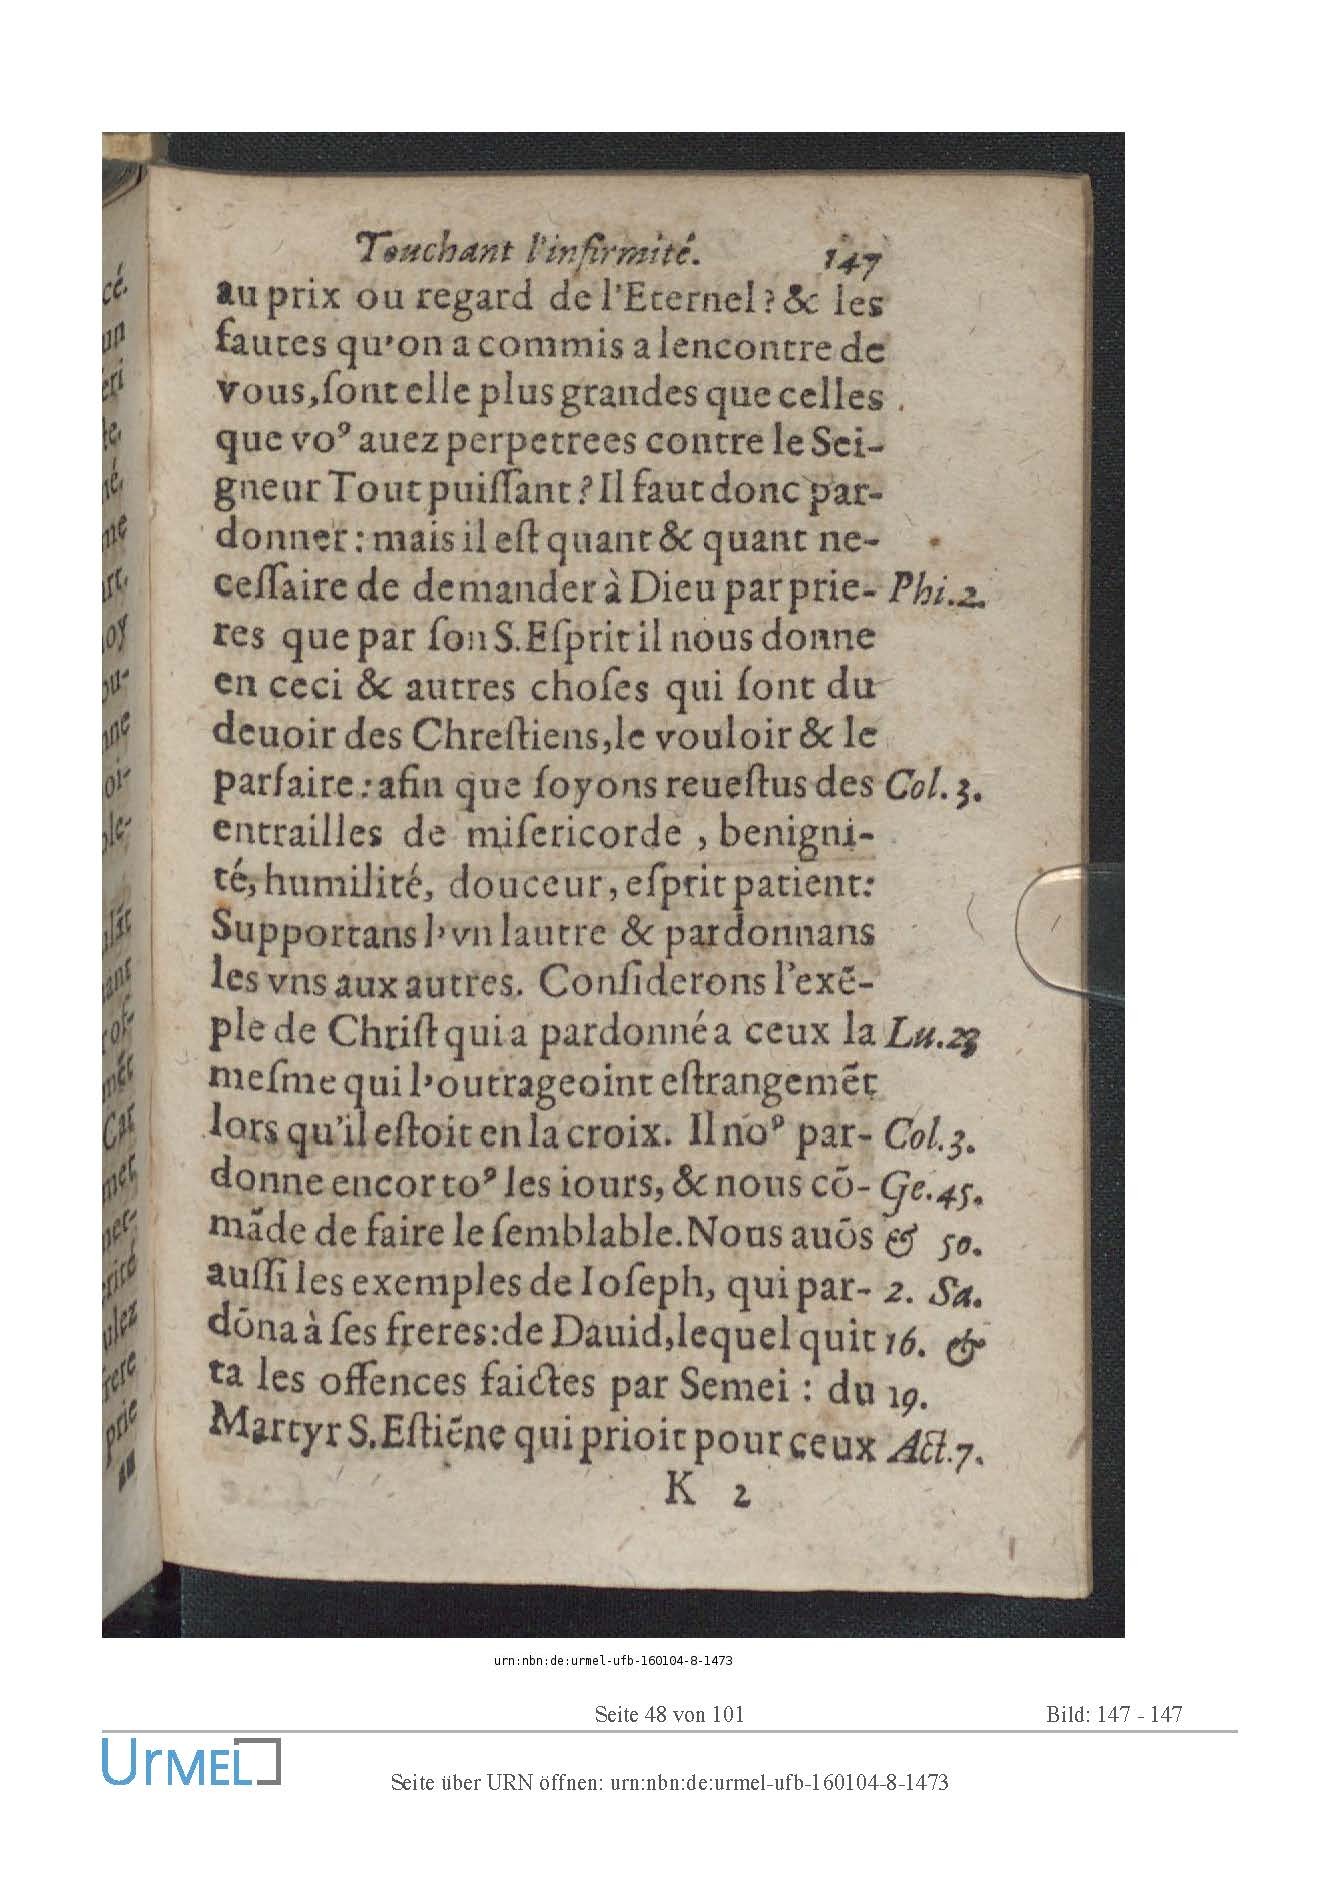 Touchant l'infirmité. 147
au prix ou regard de l'Eternel? & les
fautes qu'on a commis a lencontre de
vous, ſont elle plus grandes que celles
que voꝰ auez perpetrees contre le Sei-
gneur Tout puiſſant? Il faut donc par-
donner: mais il eſt quant & quant ne-
ceſſaire de demander à Dieu par prie- Phi.2.
res que par ſon S. Eſprit il nous donne
en ceci & autres choſes qui ſont du
deuoir des Chreſtiens, le vouloir & le
parfaire: afin que ſoyons reueſtus des Col.3.
entrailles de miſericorde, benigni-
té, humilité, douceur, eſprit patient:
Supportans l'vn lautre & pardonnans
les vns aux autres. Conſiderons l'exē-
ple de Chriſt qui a pardonné a ceux la Lu.23
meſme qui l'outrageoint eſtrangemēt
lors qu'il eſtoit en la croix. Il noꝰ par- Col.3.
donne encor toꝰ les iours, & nous cō- Ge.45.
māde de faire le ſemblable. Nous auōs & 50.
auſſi les exemples de Ioſeph, qui par- 2. Sa.
dōna à ſes freres: de Dauid, lequel quit 16. &
ta les offences faictes par Semei: du 19.
Martyr S. Eſtiēne qui prioit pour ceux Act.7.
K 2
urn:nbn:de:urmel-ufb-160104-8-1473
Seite 48 von 101 Bild: 147 - 147
UrMEL
Seite über URN öffnen: urn:nbn:de:urmel-ufb-160104-8-1473